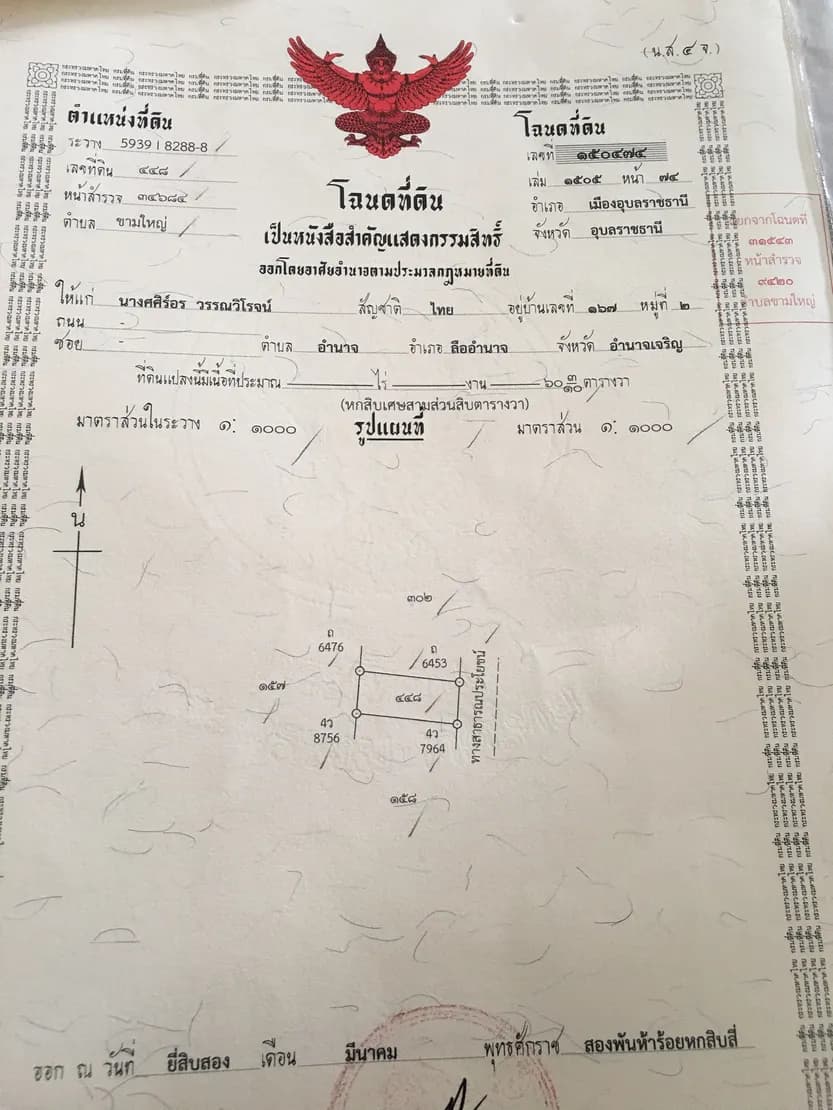 (น.ส.๔ จ.)
ตำแหน่งที่ดิน
ระวาง 5939 I 8288-8
เลขที่ดิน ๔๔๘
หน้าสำรวจ ๓๔๖๘๔
ตำบล ขามใหญ่
โฉนดที่ดิน
เลขที่ ๑๕๐๔๗๔
เล่ม ๑๕๐๕ หน้า ๗๔
อำเภอ เมืองอุบลราชธานี
จังหวัด อุบลราชธานี
โฉนดที่ดิน
เป็นหนังสือสำคัญแสดงกรรมสิทธิ์
ออกโดยอาศัยอำนาจตามประมวลกฎหมายที่ดิน
ออกจากโฉนดที่
๓๑๕๔๓
หน้าสำรวจ
๙๔๒๐
ตำบลขามใหญ่
ให้แก่ นางศศิร์อร วรรณวิโรจน์ สัญชาติ ไทย อยู่บ้านเลขที่ ๑๖๗ หมู่ที่ ๒
ถนน -
ซอย - ตำบล อำนาจ อำเภอ ลืออำนาจ จังหวัด อำนาจเจริญ
ที่ดินแปลงนี้มีเนื้อที่ประมาณ ไร่ งาน ๖๐ ๓/๑๐ ตารางวา
(หกสิบเศษสามส่วนสิบตารางวา)
มาตราส่วนในระวาง ๑: ๑๐๐๐ รูปแผนที่ มาตราส่วน ๑: ๑๐๐๐
น
๓๐๒
ถ
6476
ถ
6453
๑๕๗
๔๔๘
ทางสาธารณประโยชน์
4ว
8756
4ว
7964
๑๕๘
ออก ณ วันที่ ยี่สิบสอง เดือน มีนาคม พุทธศักราช สองพันห้าร้อยหกสิบสี่